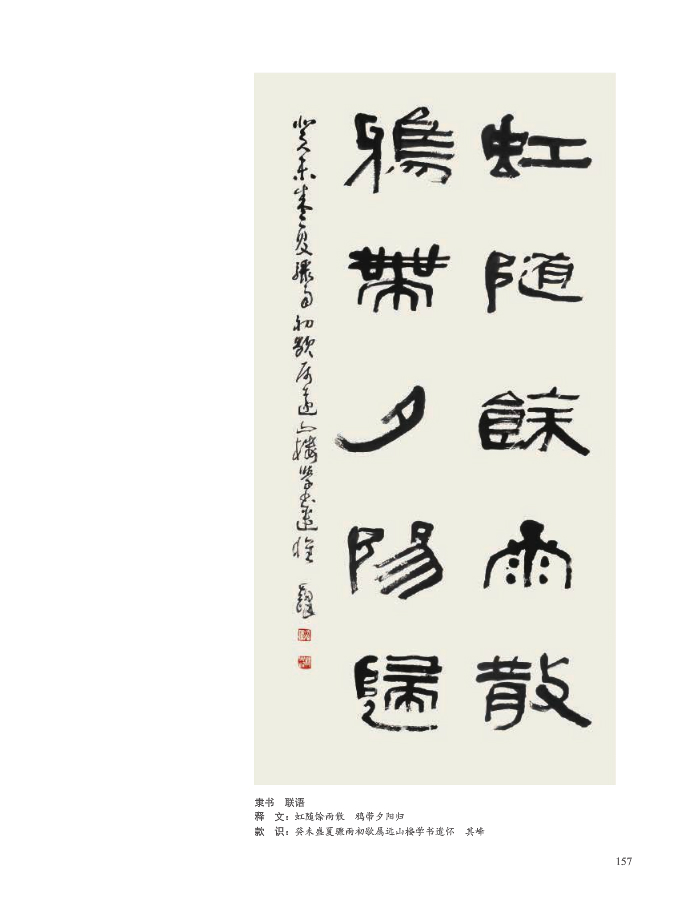 虹随餘雨散
鴉帶夕陽歸
癸未盛夏驟雨初歇居遠山樓學書遣懷 其峰
隶书 联语
释 文：虹随馀雨散 鸦带夕阳归
款 识：癸未盛夏骤雨初歇属远山楼学书遣怀 其峰
157